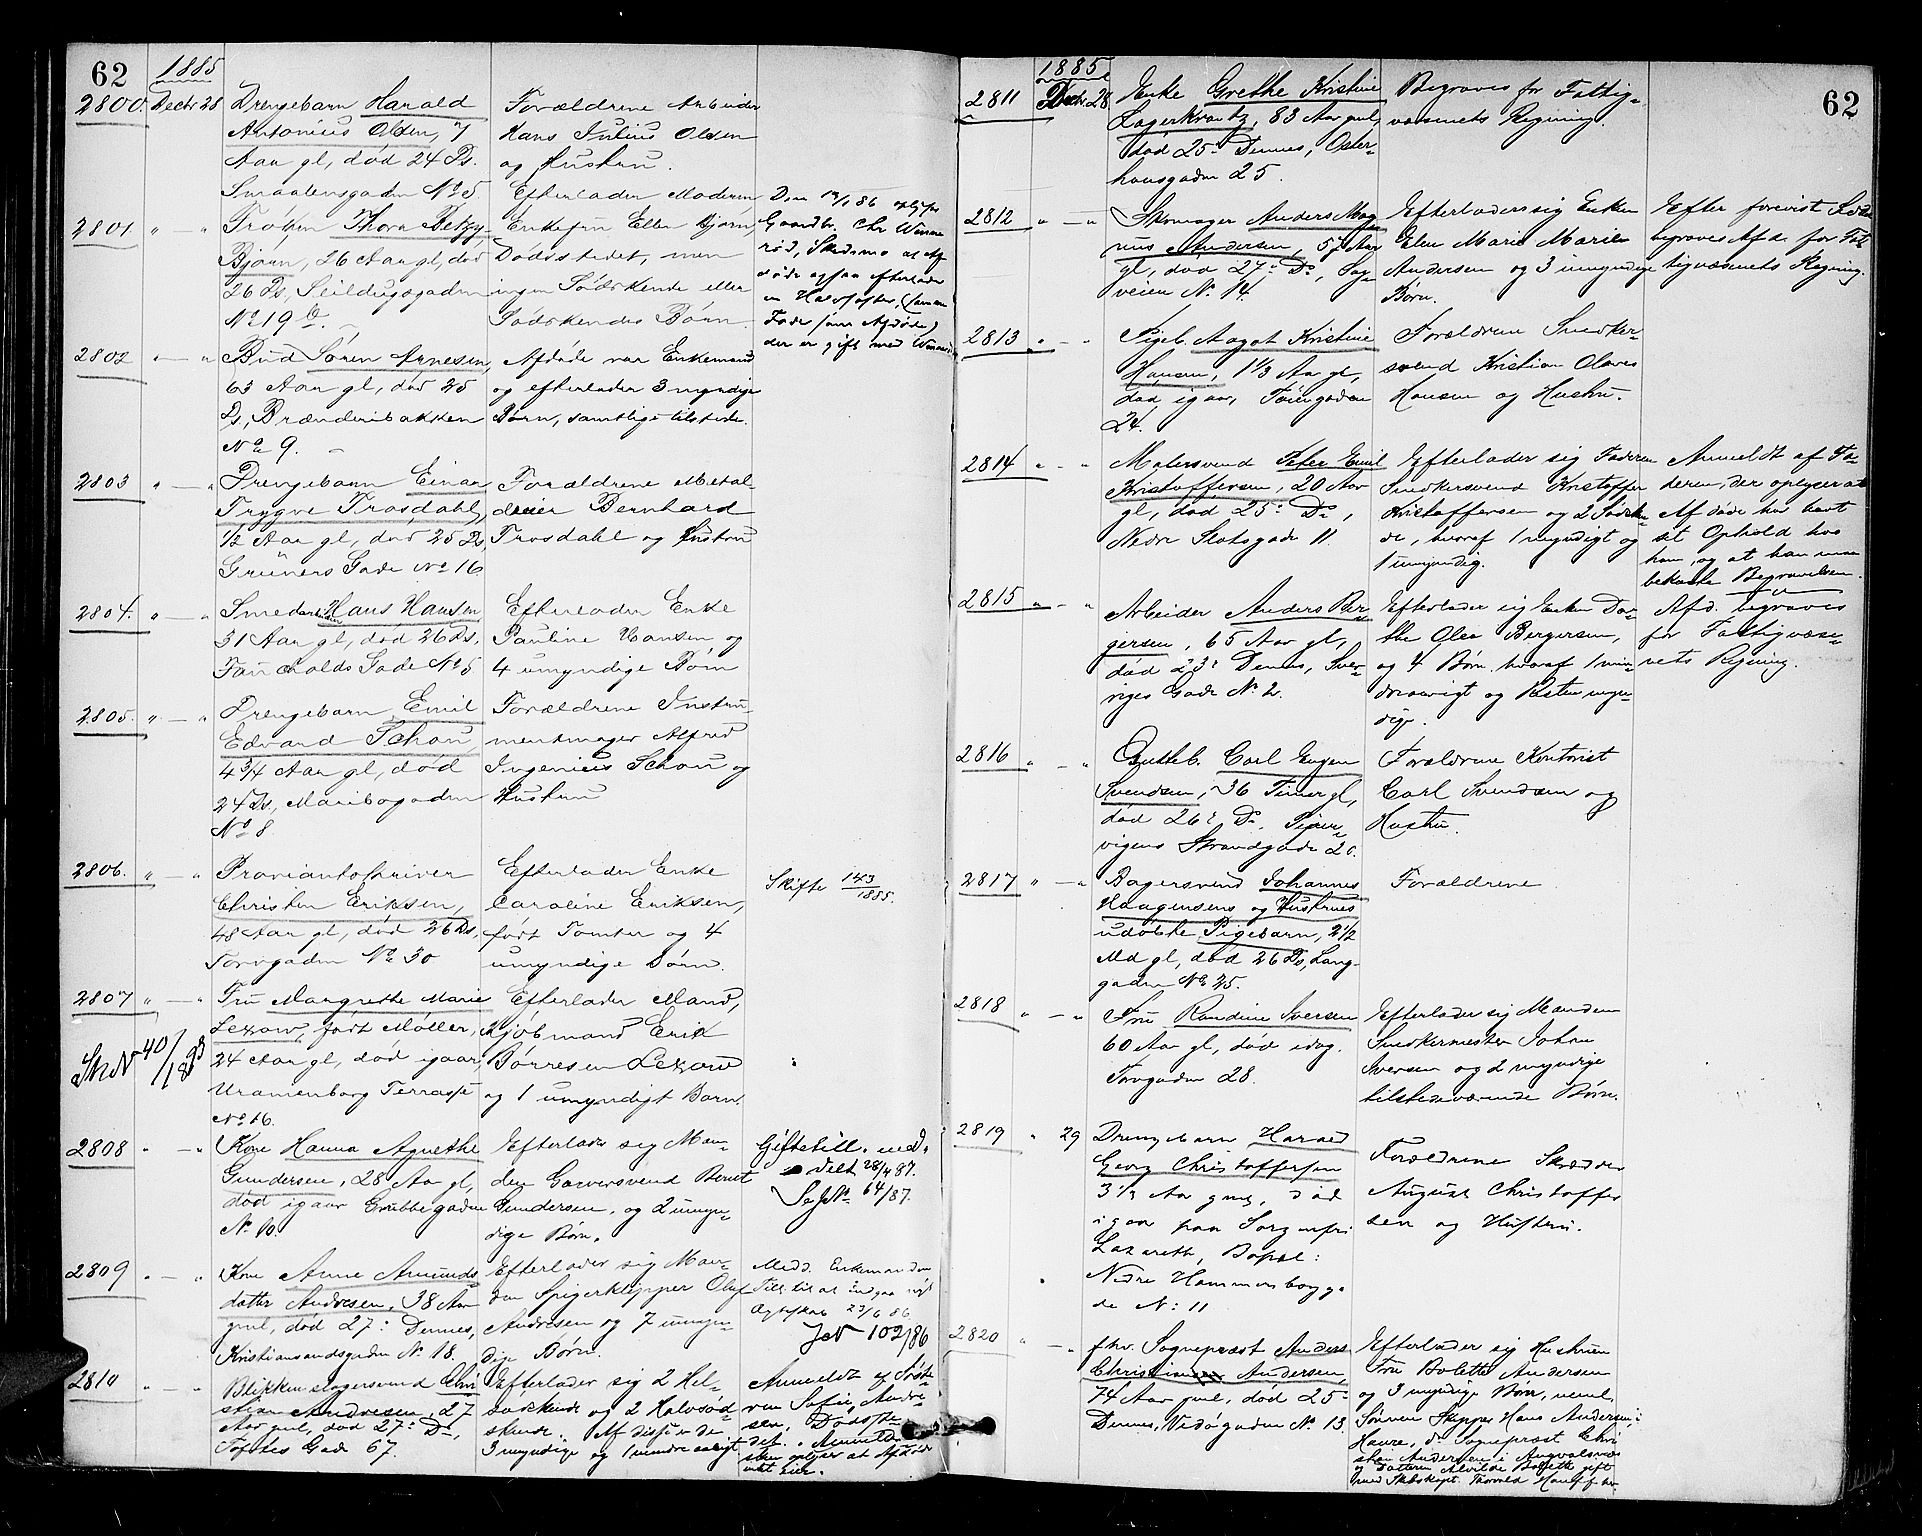 62
1885
2800. Decbr 28
Drengebarn Harald
Antonius Olsen, 7
Aar gl, død 24 Ds.
Smaalensgaden No 5
Forældrene Arbeider
Hans Julius Olsen
og Hustru.
2801 " — "
Frøken Thora Betzy
Bjørn, 26 Aar gl, død
26 Ds, Seildugsgaden
No 19 b.
Efterlader Moderen
Enkefru Ellen Bjørn,
Dødsstedet, men
ingen Södskende eller
Södskendes Börn.
Gaardbr. Chr. Winne
rød, Skedsmo at Af
døde ogsaa efterlader
en Halvsøster, (samme
Fader som Afdøde)
der er gift med
2802 " — "
Bud Sören Arnesen,
63 Aar gl, død 25
Ds, Brænderibakken
No 9.
Afdøde var Enkemand
og efterlader 3 myndige
Børn, samtlige tilstede.
2803 " — "
Drengebarn Einar
Trygve Trosdahl,
1/2 Aar gl, død 25 Ds,
Grüners Gade No 16
Forældrene Metal-
dreier Bernhard
Trosdahl og Hustru
2804. " — "
Smed Hans Hansen
31 Aar gl, død 26 Ds,
Fauchalds Gade No 5
Efterlader Enke
Pauline Hansen og
4 umyndige Børn
2805. " — "
Drengebarn Emil
Edvard Schou,
4 3/4 Aar gl, død
24 Ds, Maribogaden
No 8
Forældrene Instru-
mentmager Alfred
Ingenius Schou og
Hustru
2806. " — "
Proviantskriver
Christen Eriksen,
48 Aar gl, død 26 Ds,
Torvgaden No 30
Efterlader Enke
Caroline Eriksen,
født Tomter og 4
umyndige Børn.
Skifte 143/1885.
2807 " — "
Fru Margrethe Marie
Lexow, født Møller,
24 Aar gl, død igaar,
Uranienborg Terrasse
No 16.
Efterlader Mand,
Kjøbmand Erik
Börresen Lexow
og 1 umyndigt Barn.
2808 " — "
Kone Hanna Agnethe
Gundersen, 28 Aar gl,
død igaar Grubbegaden
No 10.
Efterlader sig Man-
den Garversvend Bernt
Gundersen, og 2 umyn-
dige Børn.
Giftetill. med-
delt 28/4 87.
Sag No 64/87.
2809 " — "
Kone Anne Amunds-
datter Andresen, 38 Aar
gml, død 27: Dennes,
Kristiansandsgaden No 18.
Efterlader sig Man-
den Spigerklipper Oluf
Andresen og 7 umyn-
dige Børn.
Medd. Enkemanden
Till. til at indgaa nyt
Ægteskab 23/6 86
JoN 102/86
2810 " — "
Blikkenslagersvend Chri
stian Andresen, 27
Aar gml, død 27: Ds,
Toftes Gade 67.
Efterlader sig 2 Hel-
södskende og 2 Halvsöd-
skende. Af disse er de
3 myndige og 1 mindreaarigt
Anmeldt af Søste-
ren Sofie Andre-
sen, Dødsste-
det. Anmelder-
sken oplyser at Afdøde
intet eier.
62
1885
2811 Decbr 28
Enke Grethe Kristine
Lagerkrantz, 83 Aar gml,
død 25: Dennes, Oster-
hausgaden 25.
Begraves for Fattig-
væsenets Regning.
2812 " — "
Skomager Anders Mag
nus Andersen, 57 Aar
gl, død 27: Ds, Sag-
veien No 14.
Efterlader sig Enken
Elen Marie Marie
Andersen og 3 umyndige
Børn.
Efter forevist
begraves Afd. for Fat-
tigvæsenets Regning.
2813 " — "
Pigeb. Aagot Kristine
Hansen, 1 1/3 Aar gl,
død igaar, Töiengaden
24.
Forældrene Snedker-
svend Kristian Olaves
Hansen og Hustru.
2814 " — "
Malersvend Peter Emil
Kristoffersen, 20 Aar
gl, død 25: Ds,
Nedre Slotsgade 11.
Efterlader sig Faderen
Snedkersvend Kristoffer
Kristoffersen og 2 Södsken-
de, hvoraf 1 myndigt og
1 umyndig.
Anmeldt af Fa-
deren, der oplyser at
Afdøde har havt
sit Ophold hos
ham, og at han maa
bekoste Begravelsen.
2815 " — "
Arbeider Anders Ber-
gersen, 65 Aar gl,
død 23: Dennes, Sver-
riges Gade No 2.
Efterlader sig Enken Dor-
the Olea Bergersen,
og 4 Børn hvoraf 1 min-
dreaarigt og Resten myn-
dige.
Afd. begraves
for Fattigvæse-
nets Regning.
2816 " — "
Gutteb. Carl Eugen
Svendsen, 36 Timer gl,
død 26: Ds, Piper-
vigens Strandgade 20.
Forældrene Kontorist
Carl Svendsen og
Hustru.
2817 " — "
Bagersvend Johannes
Haagensens og Hustrues
udøbte Pigebarn, 2 1/2
Md gl, død 26 Ds, Lang-
gaden No 25.
Forældrene
2818 " — "
Fru Randine Iversen
60 Aar gl, død idag.
Torvgaden 28.
Efterlader sig Manden
Snedkermester Johan
Iversen og 2 myndige
tilstedeværende Børn.
2819 " 29
Drengebarn Harald
Georg Christoffersen
3 1/3 Aar gml, død
igaar paa Sorgenfri
Lazareth, Bopæl:
Nedre Hammersborgga-
de No: 11
Forældrene Skrædder
August Christoffer
sen og Hustru.
2820 " — "
fhv. Sognepræst Anders
Christian Andersen,
74 Aar gml, død 25:
Dennes, Vidsgaden No 13
Efterlader sig Hustruen
Fru Bolette Andersen
og 3 myndige Børn, neml.
Sønnen Skipper Hans Andersen, i
Havre, Sognepræst Chri
stian Andersen i
og Datteren Alvilde Bolette gift
med Skibskapt. Thorvald